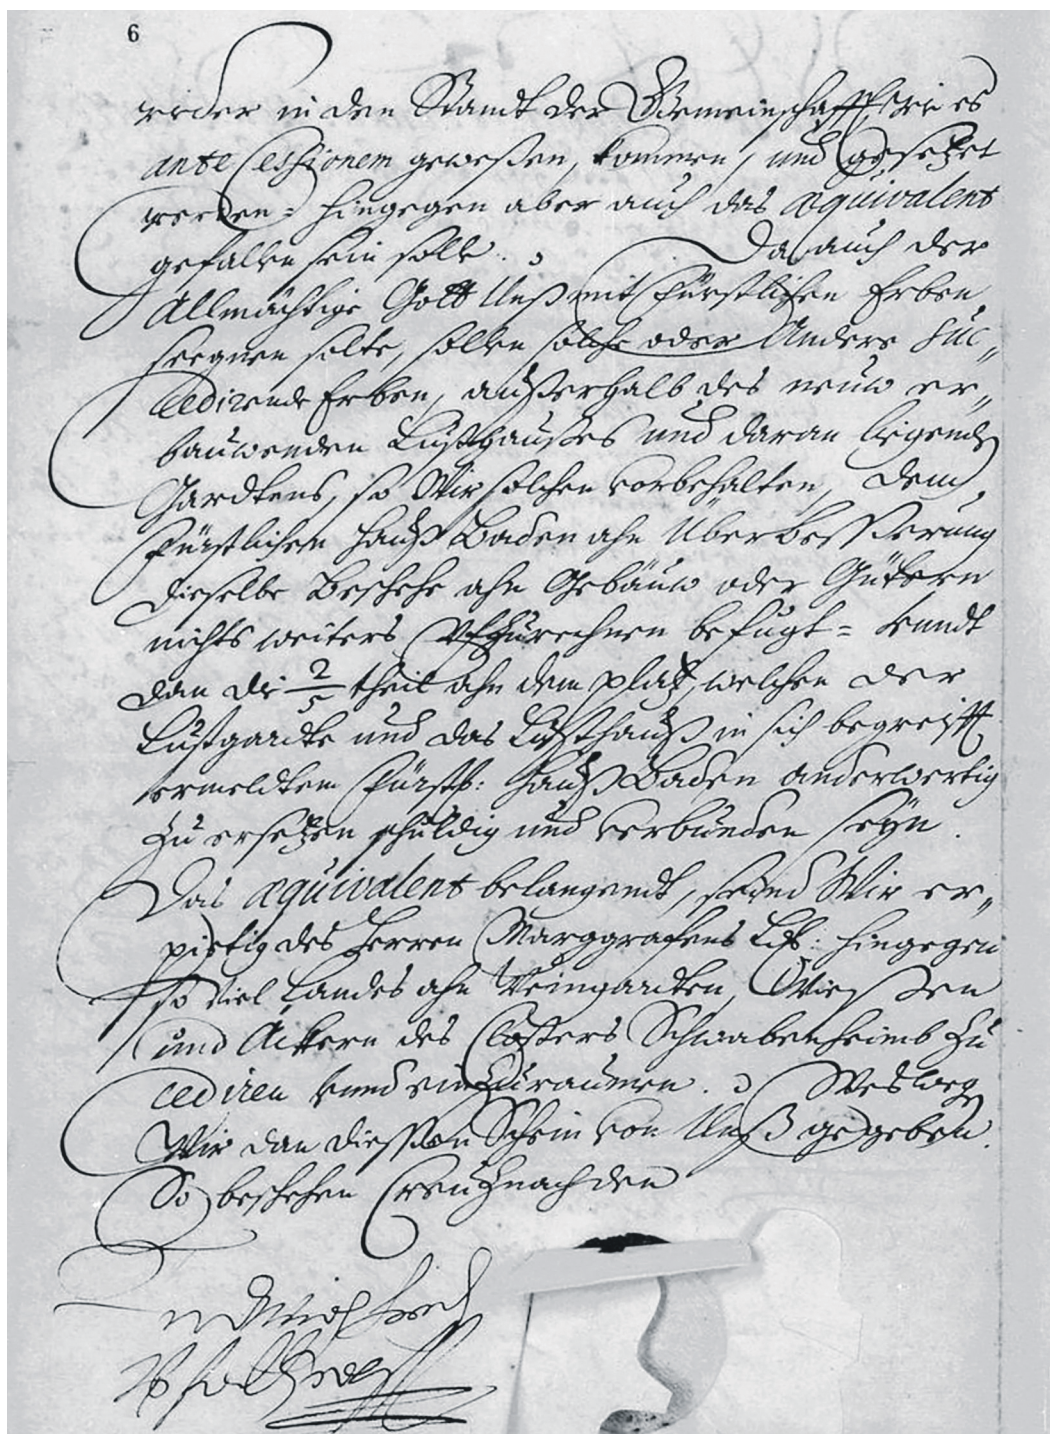 6
wider in den Standt der Gemeinschafft, wie es
ante Cessionem gewesen, kommen, und gesetzet
werden: hingegen aber auch das æquivalent
gefallen sein solle. Da auch der
Allmächtige Gott Unß mit Fürstlichen Erben
seegnen solte, sollen solche oder Andere Suc„
cedirende Erben, außerhalb des neuw er„
bauwenden Lusthaußes und daran ligenden
Gardtens, so Wir solchen vorbehalten, dem
Fürstlichen Hauß Baden ahn Überbesserung
dieselbe beschehe ahn Gebäuw oder Güttern
nichts weiters Uffzurechnen befugt = unndt
dan die 2/5 theil ahn dem platz, welchen der
Lustgardte und das Lusthauß in sich begreifft
ermeldtem Fürstl: Hauß Baden anderwertig
zu ersetzen schuldig und verbunden seyn.
Das æquivalent belangendt, seind Wir er„
pietig des Herren Marggrafens Lbd: hingegen
so viel Landes ahn Weingardten, Wiessen
und Äckern des Closters Schwabenheimb zu
cediren unnd einzuraumen. Weswegen
Wir dan diessen Schein von Unß gegeben.
So beschehen Creuznach den